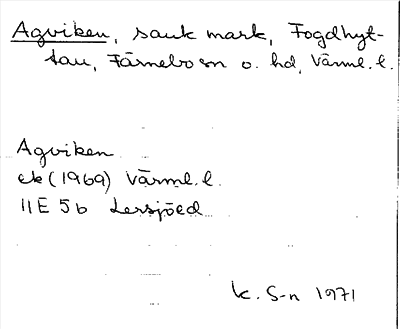 Agviken, sank mark, Fogdhyt-
tan, Färnebo sn o. hd, Värml. l.
Agviken
ek (1969) Värml. l.
11E 5b Lersjöed
K. S-n 1971